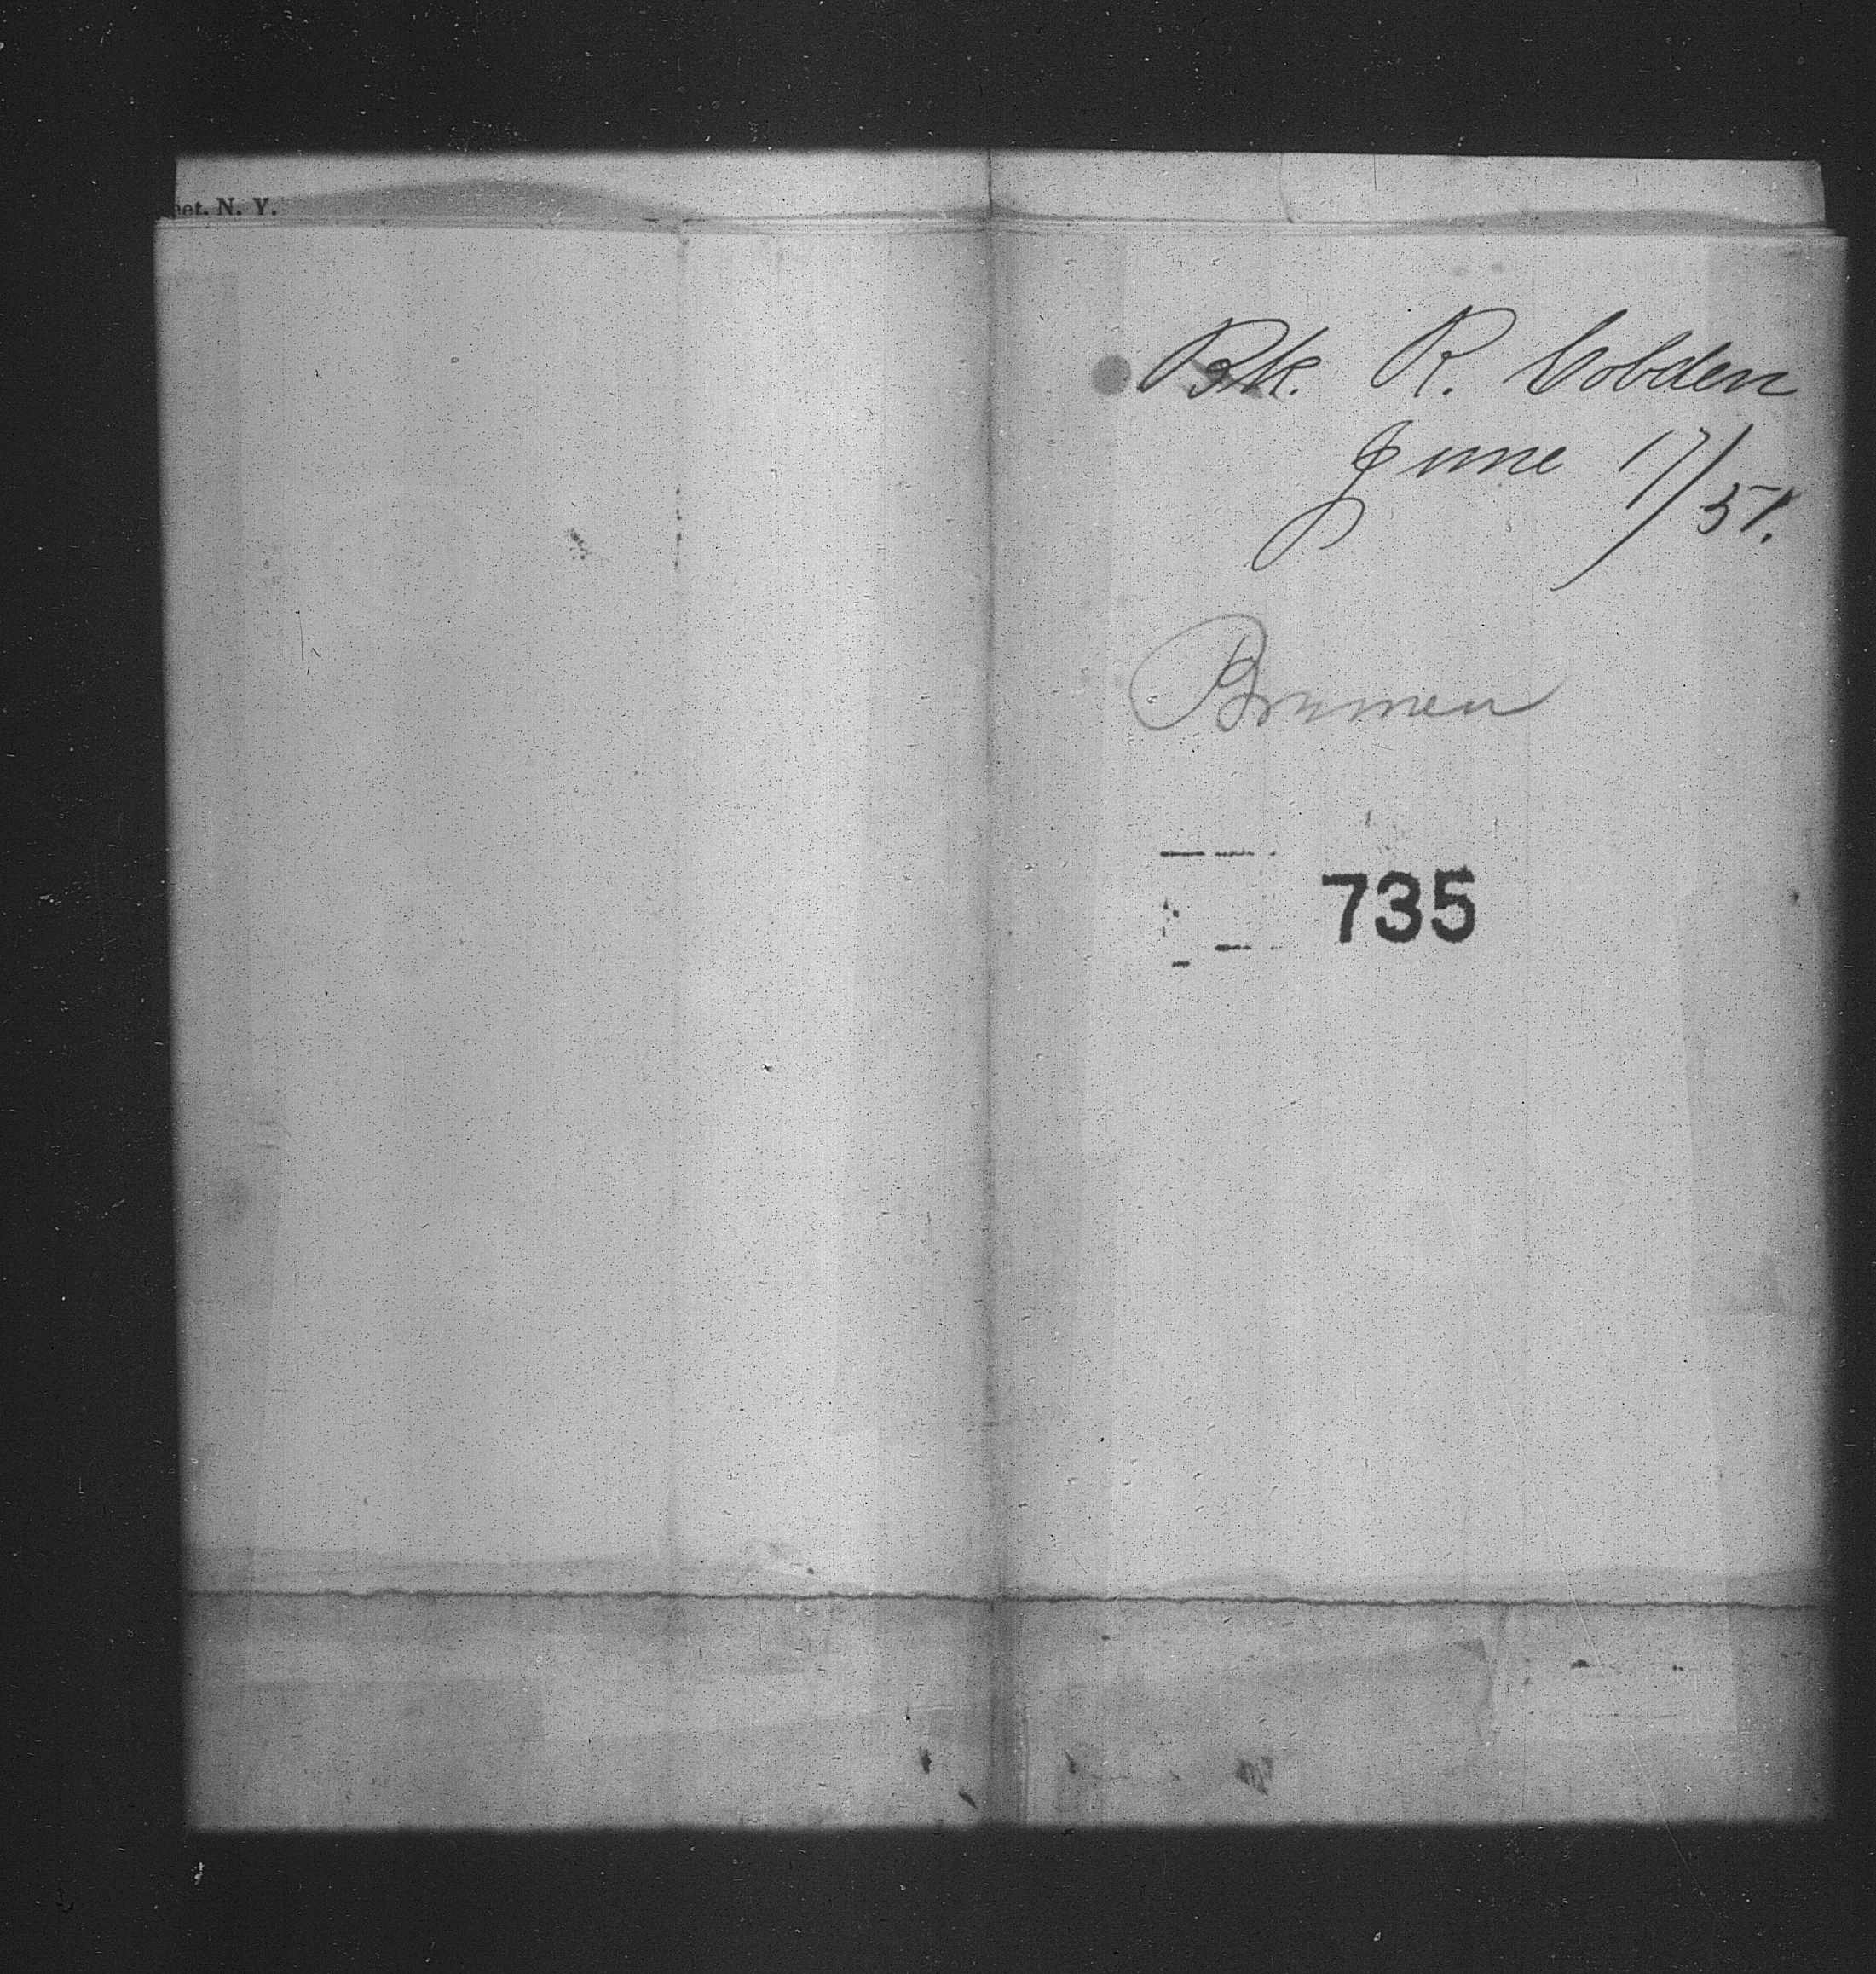 N. Y.
Bk. R. Cobden
June 17/51.
Bremen
735